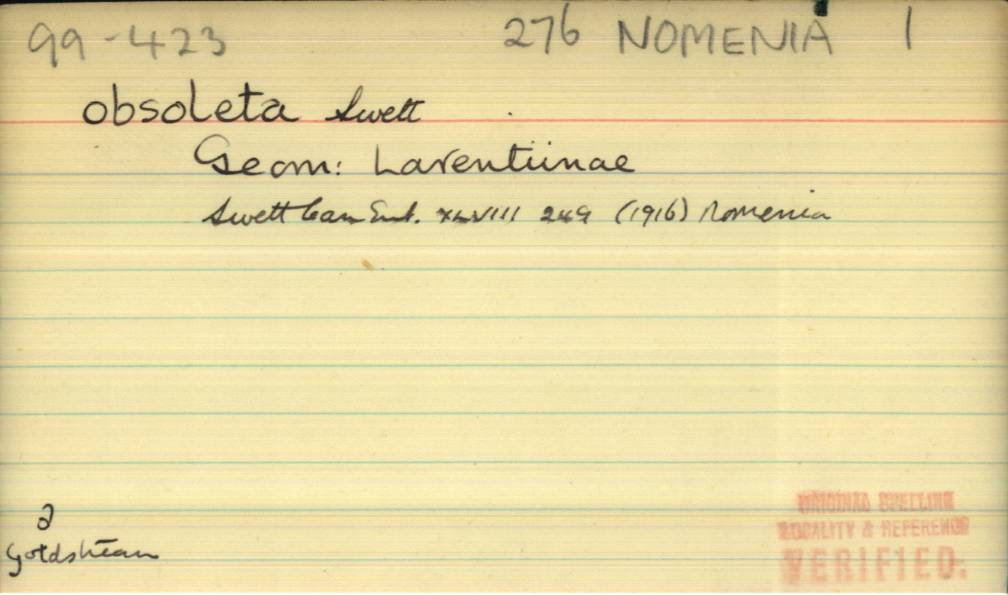 99-423 276 NOMENIA 1
obsoleta Swett
Geom: Larentiinae
Swett Can Ent. XLVIII 249 (1916) Nomenia
a
Goldstream
ORIGINAL SPELLING
LOCALITY & REFERENCE
VERIFIED.